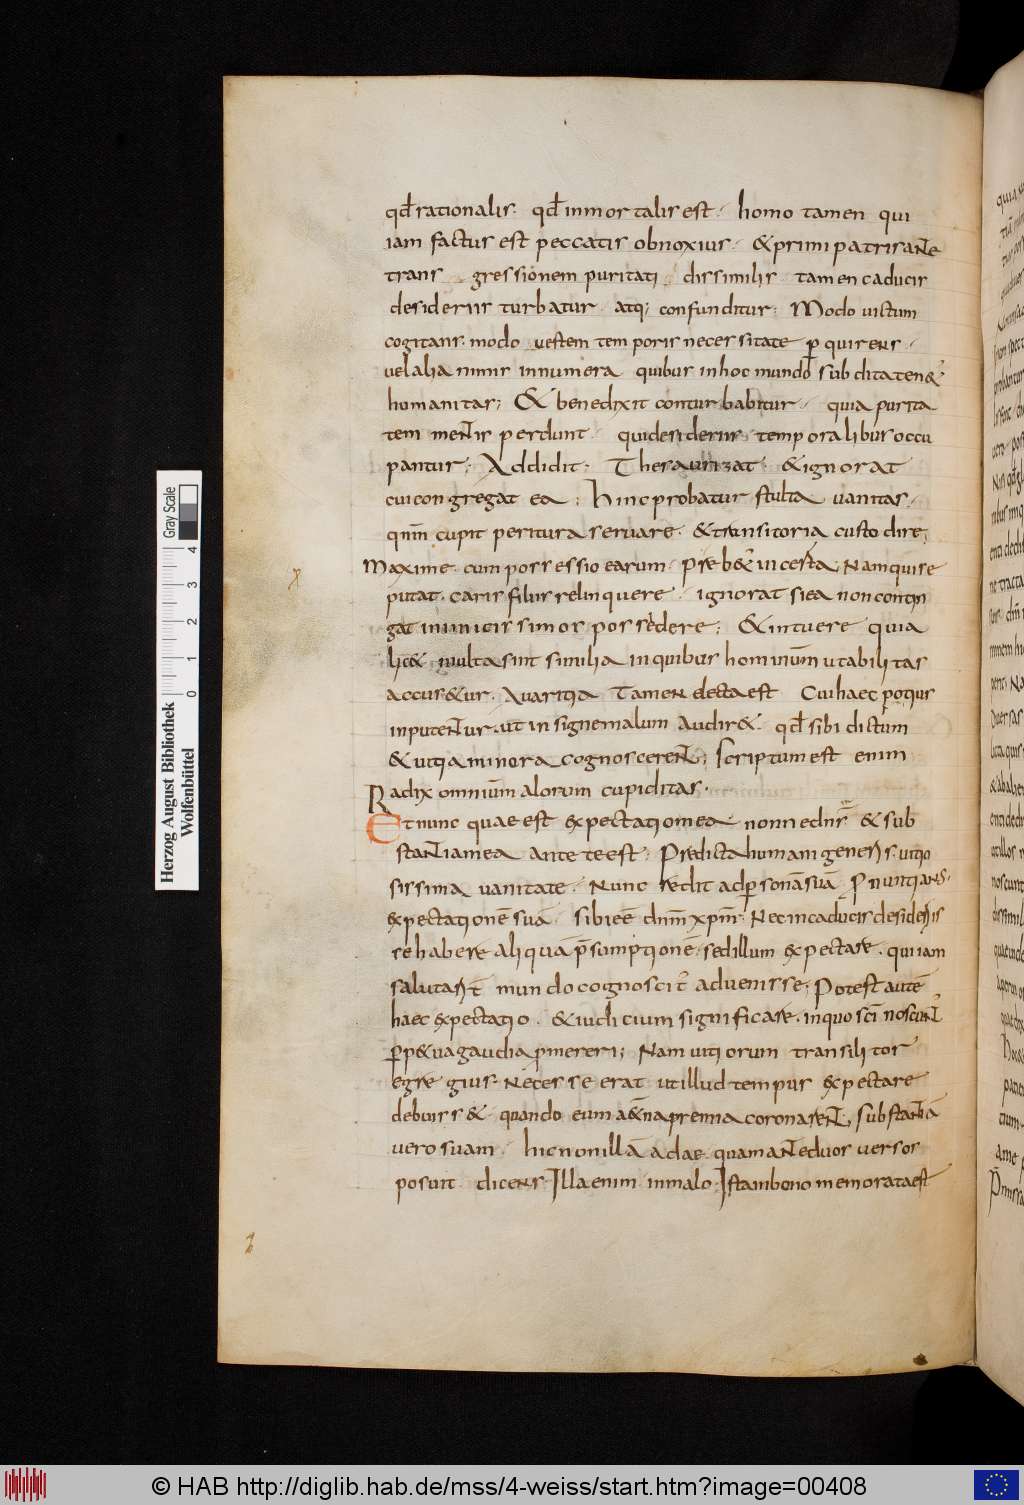 qđ rationalis· qđ inmortalis est· homo tamen qui
iam factus est peccatis obnoxius· & primi patris ante
trans gressionem puritati dissimilis tamen caducis
desideriis turbatur atq; confunditur· Modo victum
cogitans· modo vestem temporis necessitate perquirens·
vel alia nimis innumera quibus in hoc mundo subdita ten&ur
humanitas; Et bene dixit conturbabitur· quia purita
tem mentis perdunt· qui desideriis temporalibus occu
pantur; Addidit· Thesaurizat· & ignorat
cui congregat ea; Hinc probatur stulta vanitas·
qnm̄ cupit peritura servare· & transitoria custodire;
Maxime cum possessio earum preb&ur incerta, Nam qui se
putat caris filiis relinquere· ignorat si ea non contin
gat inimicissimos possedere; & intuere quia
lic& multa sint similia in quibus hominum utabilitas
accus&ur· Avaritia tamen electa est Cui haec potius
inputentur· ut insigne malum audir&· qđ sibi dictum
& vitia minora cognoscerent; scriptum est enim
Radix omnium malorum cupiditas·
Et nunc quae est expectatio mea nonne dn̄s & sub
stantia mea ante te est; Predicta humani generis vitio
sissima vanitate· Nunc redit ad personā suā pnuntians·
expectationē suā· sibi eē dnm̄ xpm̄· Nec in caducis desideriis
se habere aliquā p̄sumptionē· sed illum expectare· qui iam
salutarit̄ mundo cognoscit᷑ advenisse; Potest autē
haec expectatio· & iudicium significare· in quo sc̄i noscunt᷑
perp&ua gaudia promereri; Nam vitiorum transilitor
egregius· Necesse erat ut illud tempus expectare
debuiss&· quando eum a&̄na premia coronarent; substantiā
vero suam· hic non illā ad ae quam ante duos versos
posuit dicens· Illa enim in malo; Ista in bono memorata est
Herzog August Bibliothek
Wolfenbüttel
0 1 2 3 4
Gray Scale
© HAB http://diglib.hab.de/mss/4-weiss/start.htm?image=00408